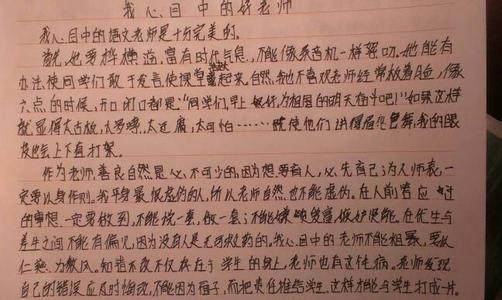 我心目中的好老师
我心目中的语文老师是十分完美的。
首先,她要摩登,富有时代气息,不能像录音机一样絮叨。她能有
办法使同学们敢于发言,使课堂起来。自然,我也不喜欢老师经常板着A面,像
六点的时候,开口闭口都是:"同学们早上好,为祖国的明天奋斗吧!"如果这样
就显得太古板,太罗嗦,太迂腐,太可怕……使他们讲得眉飞色舞,我的眼
皮也会上下直打架。
作为老师,善良自然是必不可少的,因为想要育人,必先自己为人师表,一
定要以身作则。我平身最恨虚伪的人,所以老师自然也不能虚伪。在人前答应过
的事想一定要做到,不能说一套,做一套;不能敷衍。在优生与
差生之间不能有偏见,因为没有人是无可救药的。我心目中的老师不能粗暴,要以
仁慈为教风。知错不改不仅存在于学生的身上,老师也有这传病。老师发现
自己的错误应及时悔改,不能因为面子,而把责任推给学生,这样才能与学生打成一片。